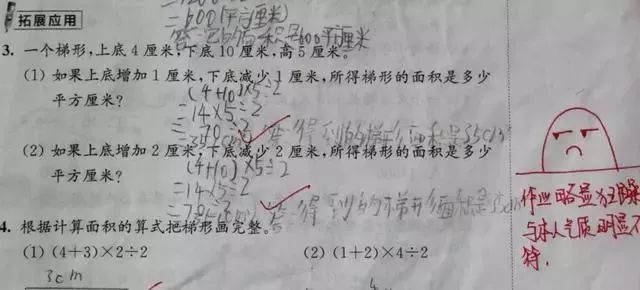 =600(平方厘米)
拓展应用
答:它的面积是600平方厘米
3. 一个梯形,上底 4 厘米,下底 10 厘米,高 5 厘米。
(1) 如果上底增加 1 厘米,下底减少 1 厘米,所得梯形的面积是多少
平方厘米?
(4+10)×5÷2
=14×5÷2
=70÷2
答:得到的梯形面积是35cm²
(2) 如果上底增加 2 厘米,下底减少 2 厘米,所得梯形的面积是多少
平方厘米?
(4+10)×5÷2
=14×5÷2
=70÷2
答:得到的梯形面积是
作业略显狂躁
与本人气质明显不
符.
4. 根据计算面积的算式把梯形画完整。
(1) (4+3)×2÷2
(2) (1+2)×4÷2
3cm
4